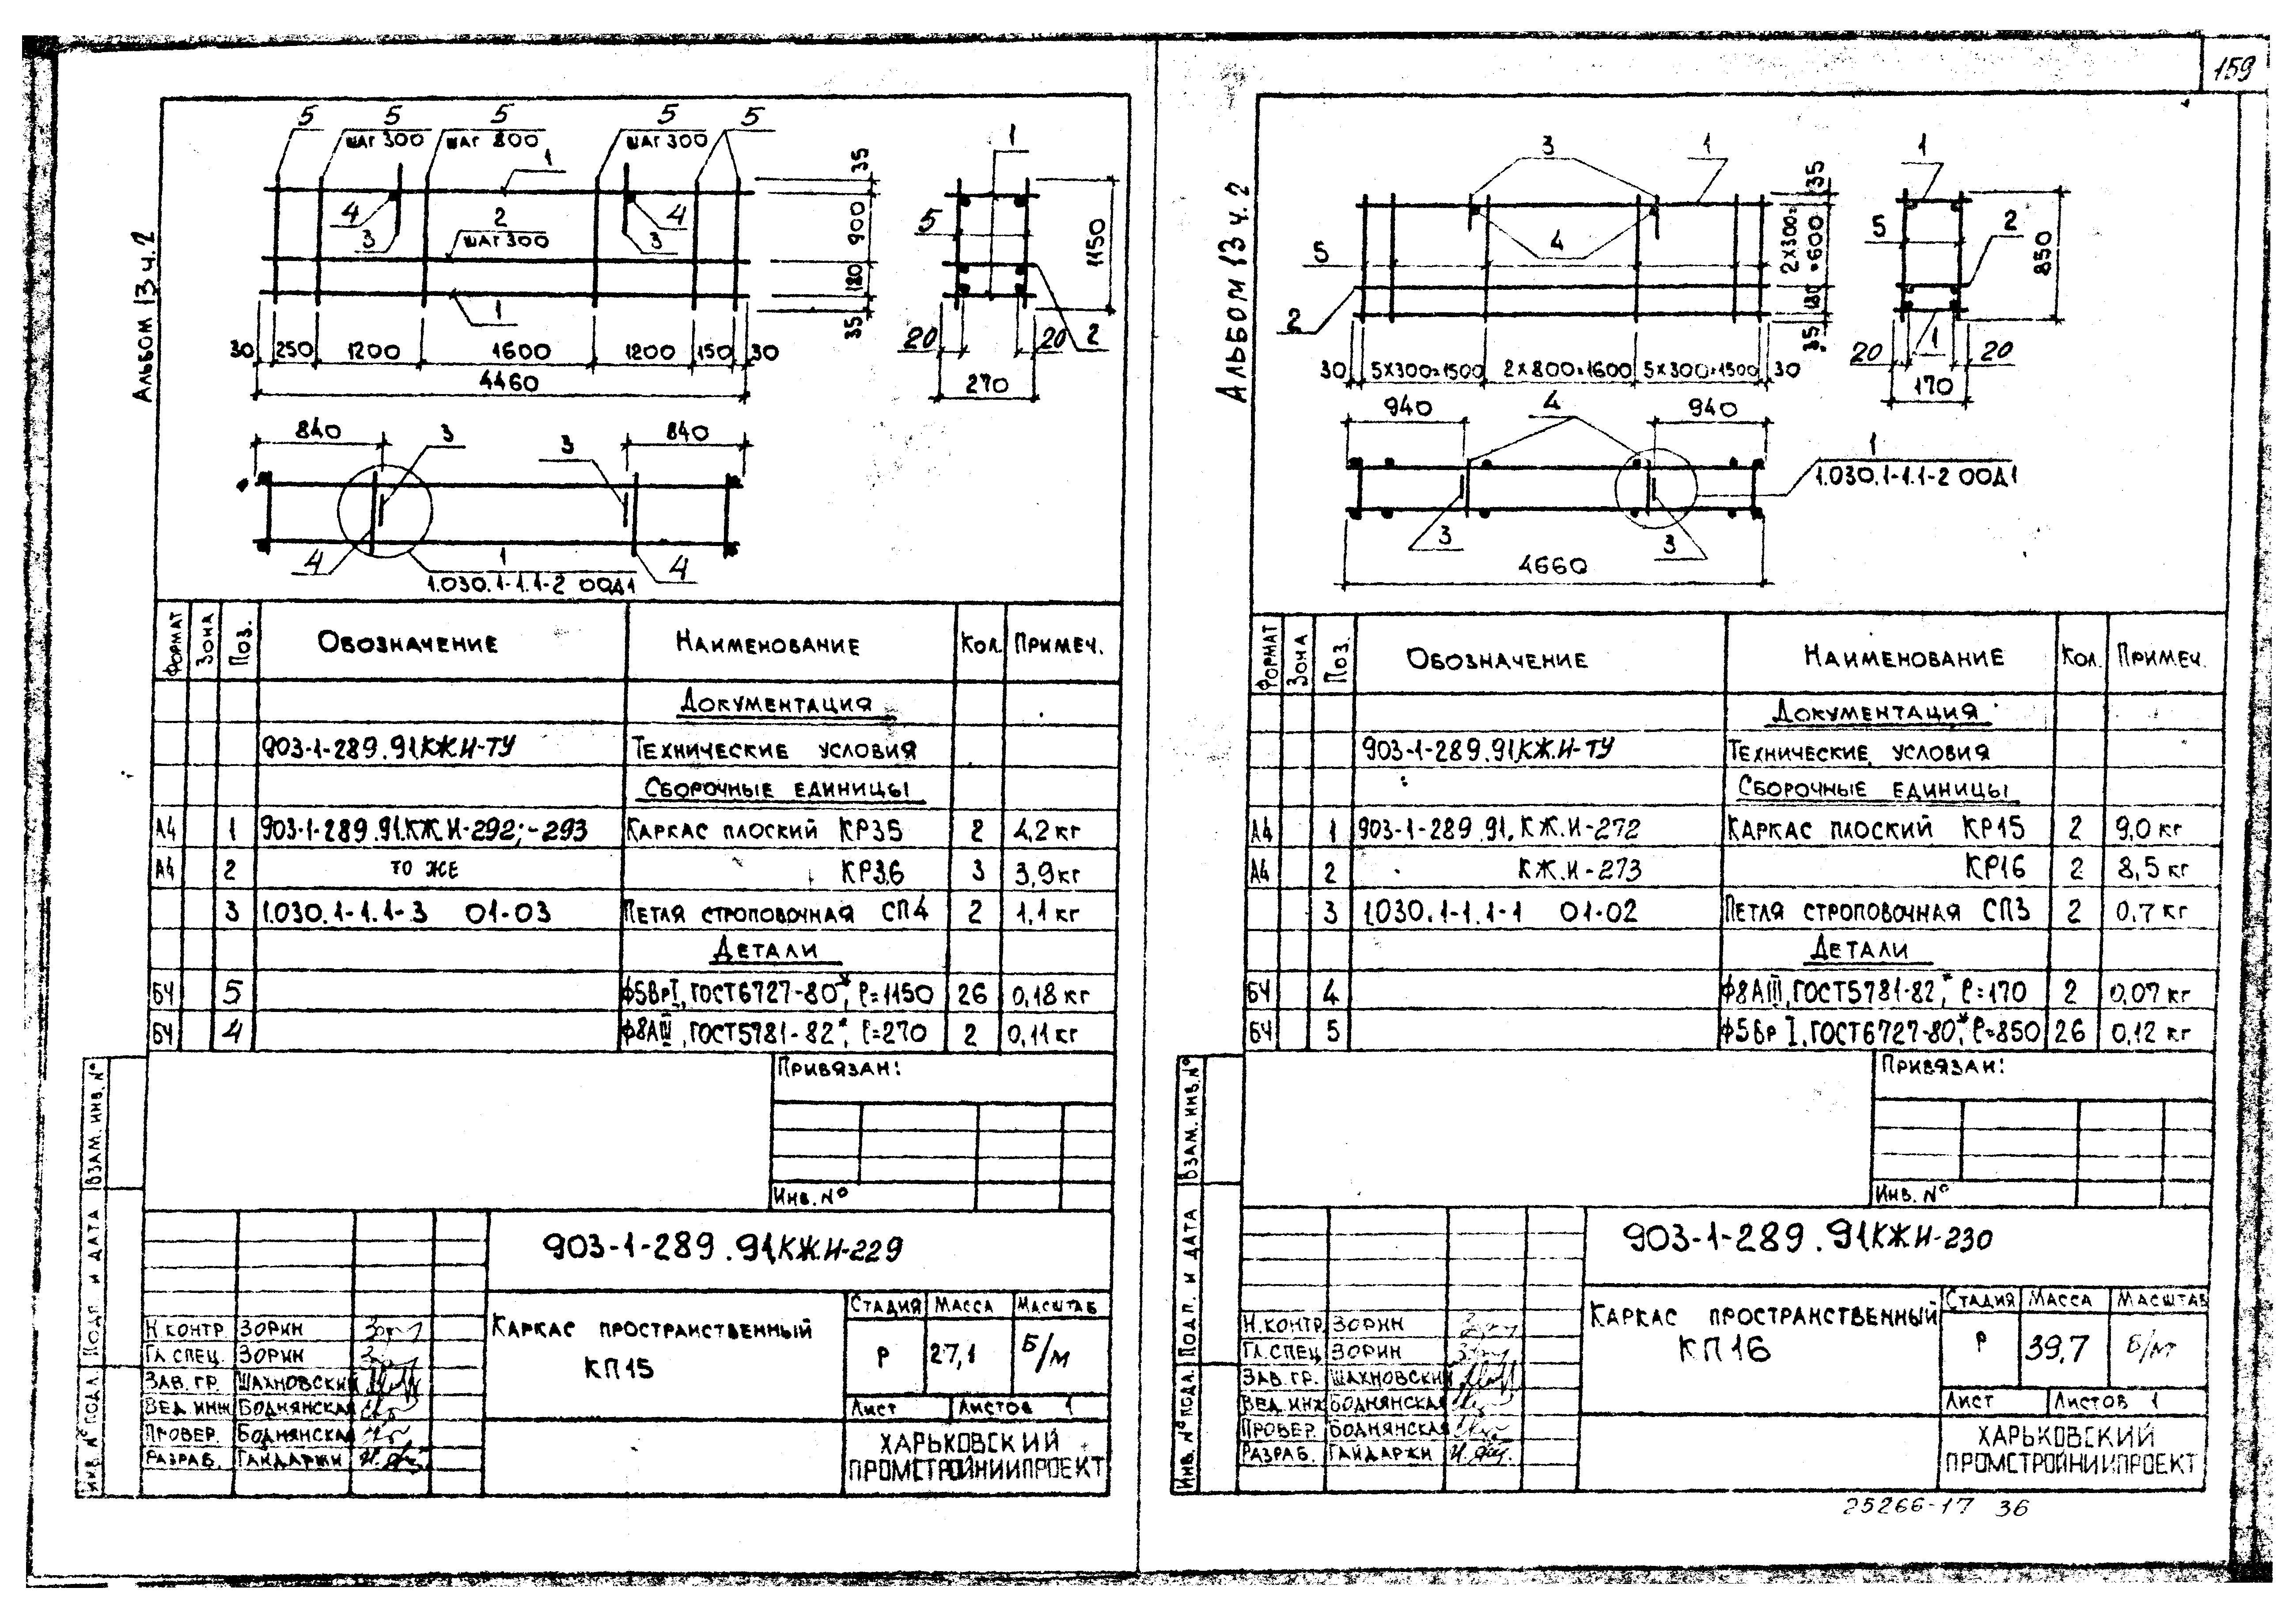 159
Альбом 13 ч. 2
5 5 5 5 5
шаг 300 шаг 800 шаг 300
1
4 3 2 шаг 300 4 3
1
35 900 180 35
30 250 1200 1600 1200 150 30
4460
1
5
1150
20 20 2
270
840 3 3 840
4 1 4
1.030.1-1.1-2 00Д1
Формат Зона Поз. Обозначение Наименование Кол. Примеч.
Документация
903-1-289.91.КЖ.И-ТУ Технические условия
Сборочные единицы
А4 1 903-1-289.91.КЖ.И-292;-293 Каркас плоский КР35 2 4,2 кг
А4 2 то же КР36 3 3,9 кг
3 1.030.1-1.1-3 01-03 Петля строповочная СП4 2 1,1 кг
Детали
БЧ 5 ф5ВрI, ГОСТ6727-80*, ℓ=1150 26 0,18 кг
БЧ 4 ф8АIII, ГОСТ5781-82*, ℓ=270 2 0,11 кг
Привязан:
Инв. №
Взам. инв. №
Подп. и дата
Инв. № подл.
903-1-289.91.КЖ.И-229
Каркас пространственный
КП15
Стадия Масса Масштаб
Р 27,1 Б/м
Лист Листов 1
Н.контр. Зорин
Гл. спец. Зорин
Зав. гр. Шахновский
Вед. инж. Боднянская
Провер. Боднянская
Разраб. Гайдаржи
Харьковский
Промстройниипроект
Альбом 13 ч. 2
3 1
4
5
2
2х300=
=600
35 180 35
30 5х300=1500 2х800=1600 5х300=1500 30
1
5 2
850
20 1 20
170
940 4 940
1
1.030.1-1.1-2 00Д1
3 3
4660
Формат Зона Поз. Обозначение Наименование Кол. Примеч.
Документация
903-1-289.91.КЖ.И-ТУ Технические условия
Сборочные единицы
А4 1 903-1-289.91.КЖ.И-272 Каркас плоский КР15 2 9,0 кг
А4 2 КЖ.И-273 КР16 2 8,5 кг
3 1.030.1-1.1-1 01-02 Петля строповочная СП3 2 0,7 кг
Детали
БЧ 4 ф8АIII, ГОСТ5781-82*, ℓ=170 2 0,07 кг
БЧ 5 ф5Вр I, ГОСТ6727-80*, ℓ=850 26 0,12 кг
Привязан:
Инв. №
Взам. инв. №
Подп. и дата
Инв. № подл.
903-1-289.91.КЖ.И-230
Каркас пространственный
КП16
Стадия Масса Масштаб
Р 39,7 Б/м
Лист Листов 1
Н.контр. Зорин
Гл. спец. Зорин
Зав. гр. Шахновский
Вед. инж. Боднянская
Провер. Боднянская
Разраб. Гайдаржи
Харьковский
Промстройниипроект
25266-17 36